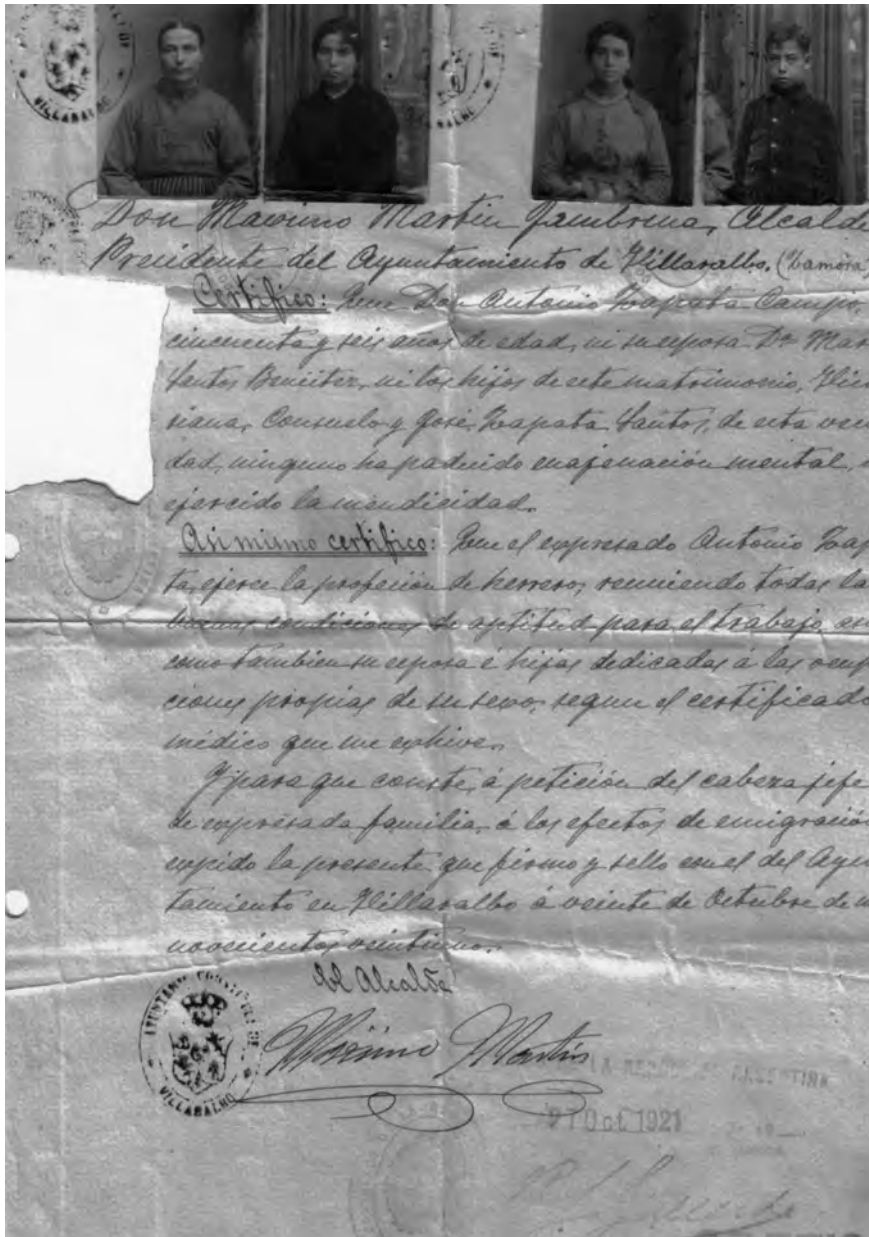 VILLARALBO
Don Maximo Martin Gambrina, Alcalde
Presidente del Ayuntamiento de Villaralbo. (Zamora)
Certifico: Que Don Antonio Zapata Campo,
cincuenta y seis años de edad, ni su esposa Dª Mar
Santos Beneitez, ni los hijos de este matrimonio, Vic
riana, Consuelo y José, Zapata Santos, de esta vecin
dad, ninguno ha padecido enajenación mental,
ejercido la mendicidad.
Asi mismo certifico: Que el expresado Antonio Zap
ta, ejerce la profesión de herrero, reuniendo todas la
buenas condiciones de aptitud para el trabajo, asi
como tambien su esposa é hijas dedicadas á las ocup
ciones propias de su sexo, segun el certificado
médico que me exhive.
Y para que conste, á petición del cabeza jefe
de expresada familia, á los efectos de emigración
expido la presente que firmo y sello con el del Ayun
tamiento en Villaralbo á veinte de Octubre de m
novecientos veintiuno.
El Alcalde
Máximo Martin
VILLARALBO
LA REPUBLICA ARGENTINA
21 Oct 1921